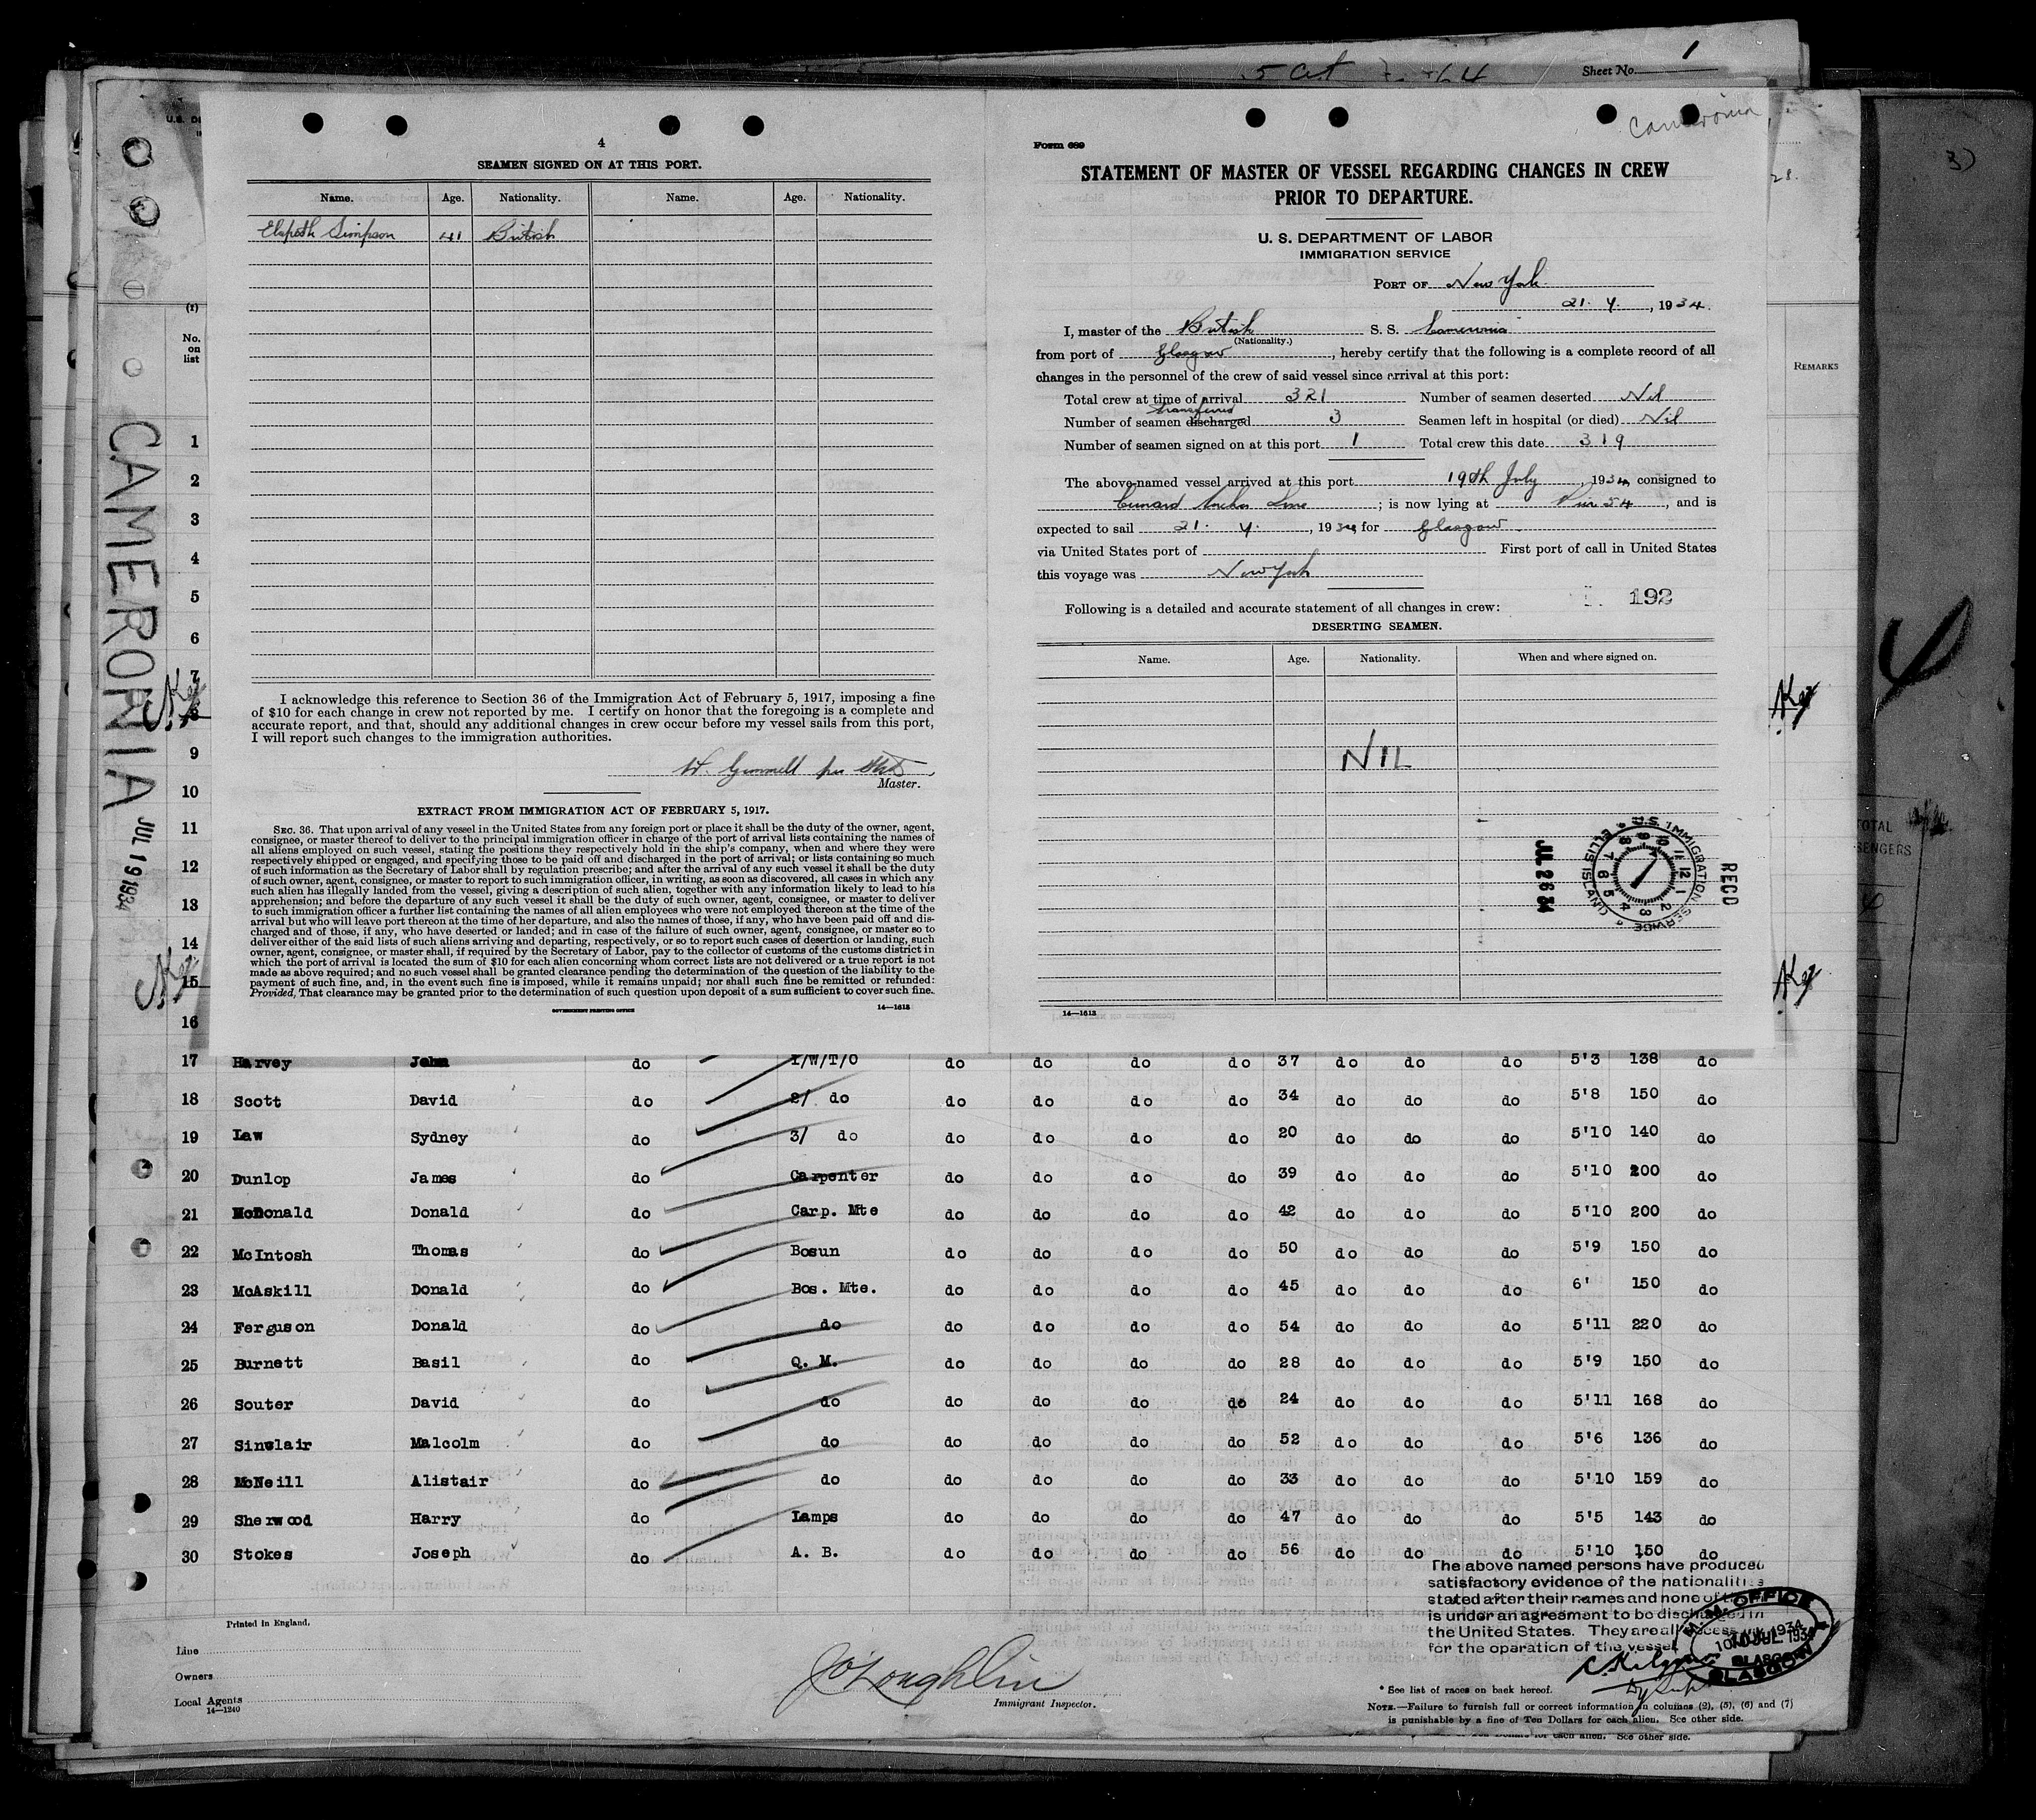 5 Oct
Sheet No. 1
Cameronia
4
SEAMEN SIGNED ON AT THIS PORT.
Name. Age. Nationality. Name. Age. Nationality.
Elspeth Simpson 41 British
I acknowledge this reference to Section 36 of the Immigration Act of February 5, 1917, imposing a fine
of $10 for each change in crew not reported by me. I certify on honor that the foregoing is a complete and
accurate report, and that, should any additional changes in crew occur before my vessel sails from this port,
I will report such changes to the immigration authorities.
W. Gemmell per
Master.
EXTRACT FROM IMMIGRATION ACT OF FEBRUARY 5, 1917.
SEC. 36. That upon arrival of any vessel in the United States from any foreign port or place it shall be the duty of the owner, agent,
consignee, or master thereof to deliver to the principal immigration officer in charge of the port of arrival lists containing the names of
all aliens employed on such vessel, stating the positions they respectively hold in the ship's company, when and where they were
respectively shipped or engaged, and specifying those to be paid off and discharged in the port of arrival; or lists containing so much
of such information as the Secretary of Labor shall by regulation prescribe; and after the arrival of any such vessel it shall be the duty
of such owner, agent, consignee, or master to report to such immigration officer, in writing, as soon as discovered, all cases in which any
such alien has illegally landed from the vessel, giving a description of such alien, together with any information likely to lead to his
apprehension; and before the departure of any such vessel it shall be the duty of such owner, agent, consignee, or master to deliver
to such immigration officer a further list containing the names of all alien employees who were not employed thereon at the time of the
arrival but who will leave port thereon at the time of her departure, and also the names of those, if any, who have been paid off and dis-
charged and of those, if any, who have deserted or landed; and in case of the failure of such owner, agent, consignee, or master so to
deliver either of the said lists of such aliens arriving and departing, respectively, or so to report such cases of desertion or landing, such
owner, agent, consignee, or master shall, if required by the Secretary of Labor, pay to the collector of customs of the customs district in
which the port of arrival is located the sum of $10 for each alien concerning whom correct lists are not delivered or a true report is not
made as above required; and no such vessel shall be granted clearance pending the determination of the question of the liability to the
payment of such fine, and, in the event such fine is imposed, while it remains unpaid; nor shall such fine be remitted or refunded:
Provided, That clearance may be granted prior to the determination of such question upon deposit of a sum sufficient to cover such fine.
GOVERNMENT PRINTING OFFICE 14—1613
Form 689
STATEMENT OF MASTER OF VESSEL REGARDING CHANGES IN CREW
PRIOR TO DEPARTURE.
U. S. DEPARTMENT OF LABOR
IMMIGRATION SERVICE
PORT OF New York.
21. 7. , 1934.
I, master of the British S. S. Cameronia
(Nationality.)
from port of Glasgow , hereby certify that the following is a complete record of all
changes in the personnel of the crew of said vessel since arrival at this port:
Total crew at time of arrival 321 Number of seamen deserted Nil
transferred
Number of seamen discharged 3 Seamen left in hospital (or died) Nil
Number of seamen signed on at this port 1 Total crew this date 319
The above-named vessel arrived at this port 19th July , 1934, consigned to
Cunard Anchor Line ; is now lying at Pier 54 , and is
expected to sail 21. 7. , 1934, for Glasgow
via United States port of First port of call in United States
this voyage was New York
192
Following is a detailed and accurate statement of all changes in crew:
DESERTING SEAMEN.
Name. Age. Nationality. When and where signed on.
NIL
RECD
U.S. IMMIGRATION SERVICE ELLIS ISLAND
JUL 26 34
14—1613
(1)
No.
on
list
REMARKS
CAMERONIA
JUL 19 1934
TOTAL
1
2
3
4
5
6
7
8
9
10
11
12
13
14
15
16
17 Harvey John do 1/W/T/O do do do do 37 do do do 5'3 138 do
18 Scott David do 2/ do do do do do 34 do do do 5'8 150 do
19 Law Sydney do 3/ do do do do do 20 do do do 5'10 140 do
20 Dunlop James do Carpenter do do do do 39 do do do 5'10 200 do
21 McDonald Donald do Carp. Mte do do do do 42 do do do 5'10 200 do
22 McIntosh Thomas do Bosun do do do do 50 do do do 5'9 150 do
23 McAskill Donald do Bos. Mte. do do do do 45 do do do 6' 150 do
24 Ferguson Donald do do do do do do 54 do do do 5'11 220 do
25 Burnett Basil do Q. M. do do do do 28 do do do 5'9 150 do
26 Souter David do do do do do do 24 do do do 5'11 168 do
27 Sinclair Malcolm do do do do do do 52 do do do 5'6 136 do
28 McNeill Alistair do do do do do do 33 do do do 5'10 159 do
29 Sherwood Harry do Lamps do do do do 47 do do do 5'5 143 do
30 Stokes Joseph do A. B. do do do do 56 do do do 5'10 150 do
The above named persons have produced
satisfactory evidence of the nationalities
stated after their names and none of
is under an agreement to be discharged in
the United States. They are all
for the operation of the vessel
M.M. OFFICE
10 JUL 1934
GLASGOW
Printed in England.
Line
Owners
Local Agents
14—1240
J O'Loughlin
Immigrant Inspector.
* See list of races on back hereof.
NOTE.—Failure to furnish full or correct information in columns (2), (5), (6) and (7)
is punishable by a fine of Ten Dollars for each alien. See other side.
for each alien. See other side.